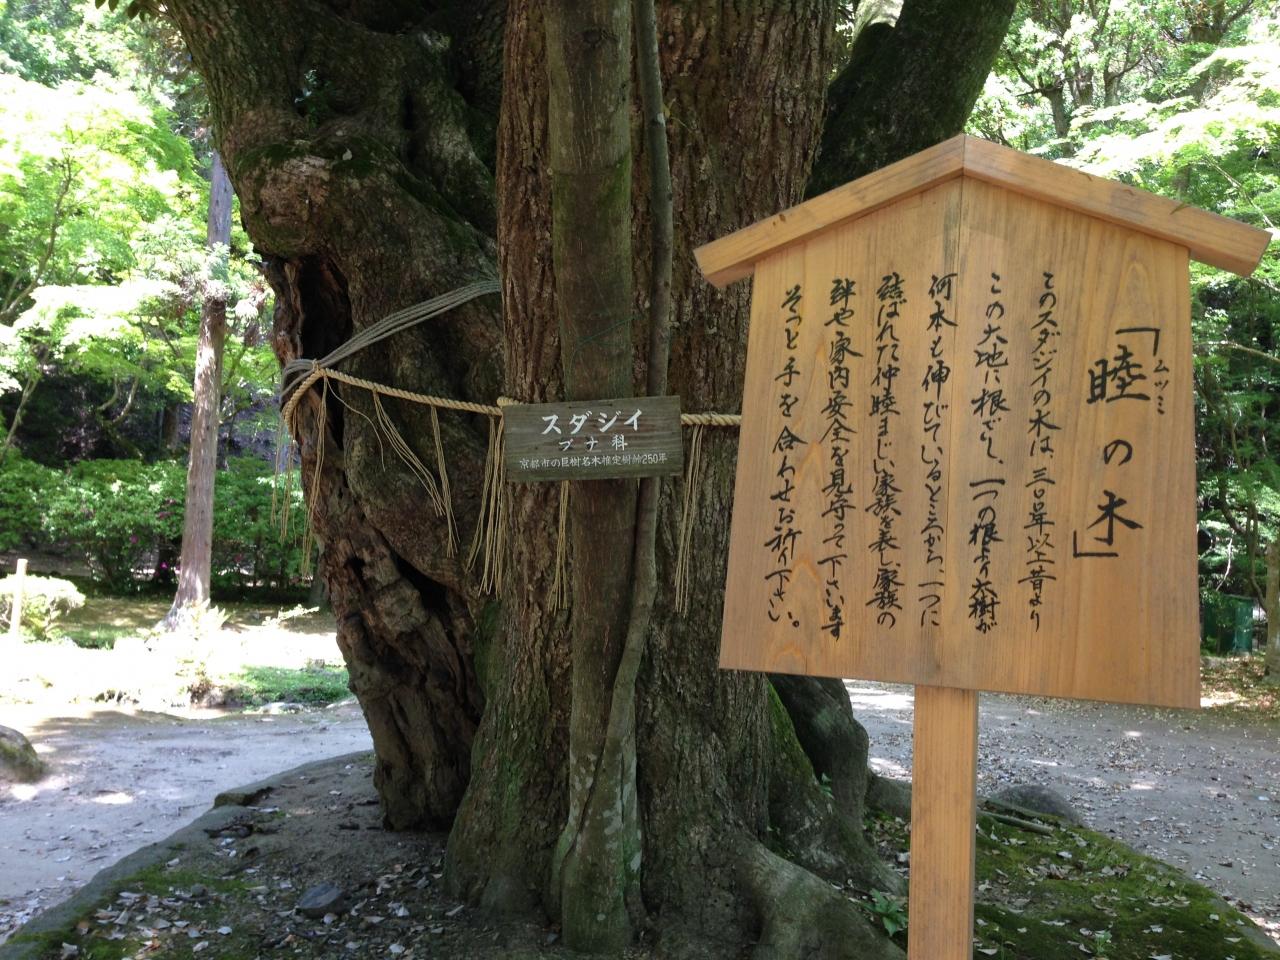 「睦の木」
ムツミ
このスダジイの木は、三〇〇年以上昔より
この大地に根ざし、一つの根より大樹が
何本も伸びているところから、一つに
結ばれた仲睦まじい家族を表し、家族の
絆や家内安全を見守って下さいます
そっと手を合わせお祈り下さい。
スダジイ
ブナ科
京都市の巨樹名木推定樹齢250年